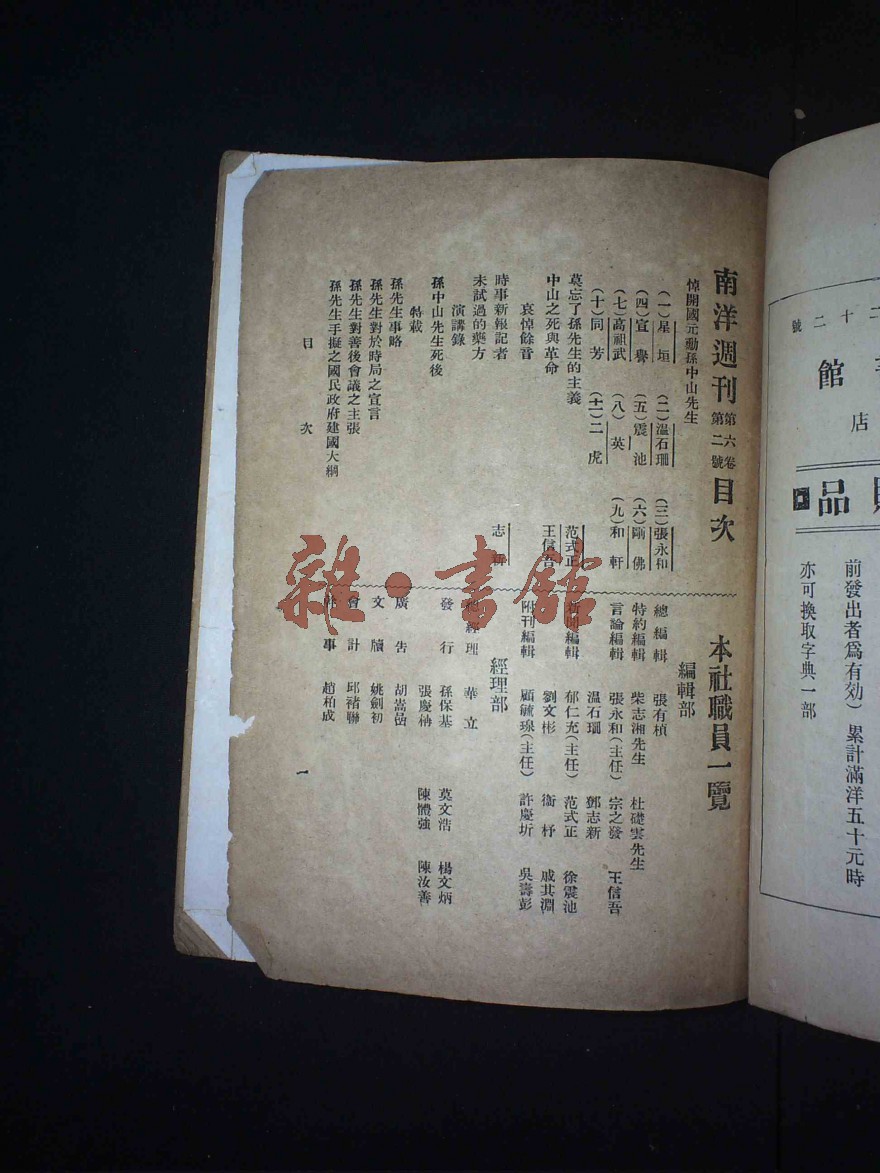 南洋週刊 第六卷 第二號 目次
悼開國元勳孫中山先生
（一）星垣 （二）溫石珊 （三）張永和
（四）宣譽 （五）震池 （六）剛佛
（七）高祖武 （八）英 （九）和軒
（十）同芳 （十一）二虎
莫忘了孫先生的主義 范式正
中山之死與革命 王信吾
哀悼餘音
時事新報記者 志
未試過的藥方
演講錄
孫中山先生死後
特載
孫先生事略
孫先生對於時局之宣言
孫先生對善後會議之主張
孫先生手擬之國民政府建國大綱
目次
本社職員一覽
編輯部
總編輯 張有楨
特約編輯 柴志湘先生 杜礎雲先生
言論編輯 張永和（主任） 宗之發 王信吾
溫石珊 鄧志新
新聞編輯 郁仁充（主任） 范式正 徐震池
劉文彬 衞杼 戚其淵
附刊編輯 顧毓瑔（主任） 許慶圻 吳壽彭
經理部
經理 華立
發行 孫保基 莫文浩 楊文炳
張慶枬 陳體强 陳汝善
廣告 胡嵩嵒
文牘 姚劍初
會計 邱褚聯
事 趙柏成
一
二十二號
館
店
品
前發出者爲有効）累計滿洋五十元時
亦可換取字典一部
雜·書館